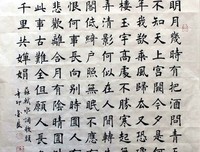 明月幾時有把酒問青
不知天上宮闕今夕是
年我欲乘風歸去又恐
樓玉宇高處不勝寒起
弄清影何似在人間轉
低綺戶照無眠不應
恨何事長向別時圓
悲歡離合月有陰晴圓
此事古難全但願人長
千里共嬋娟